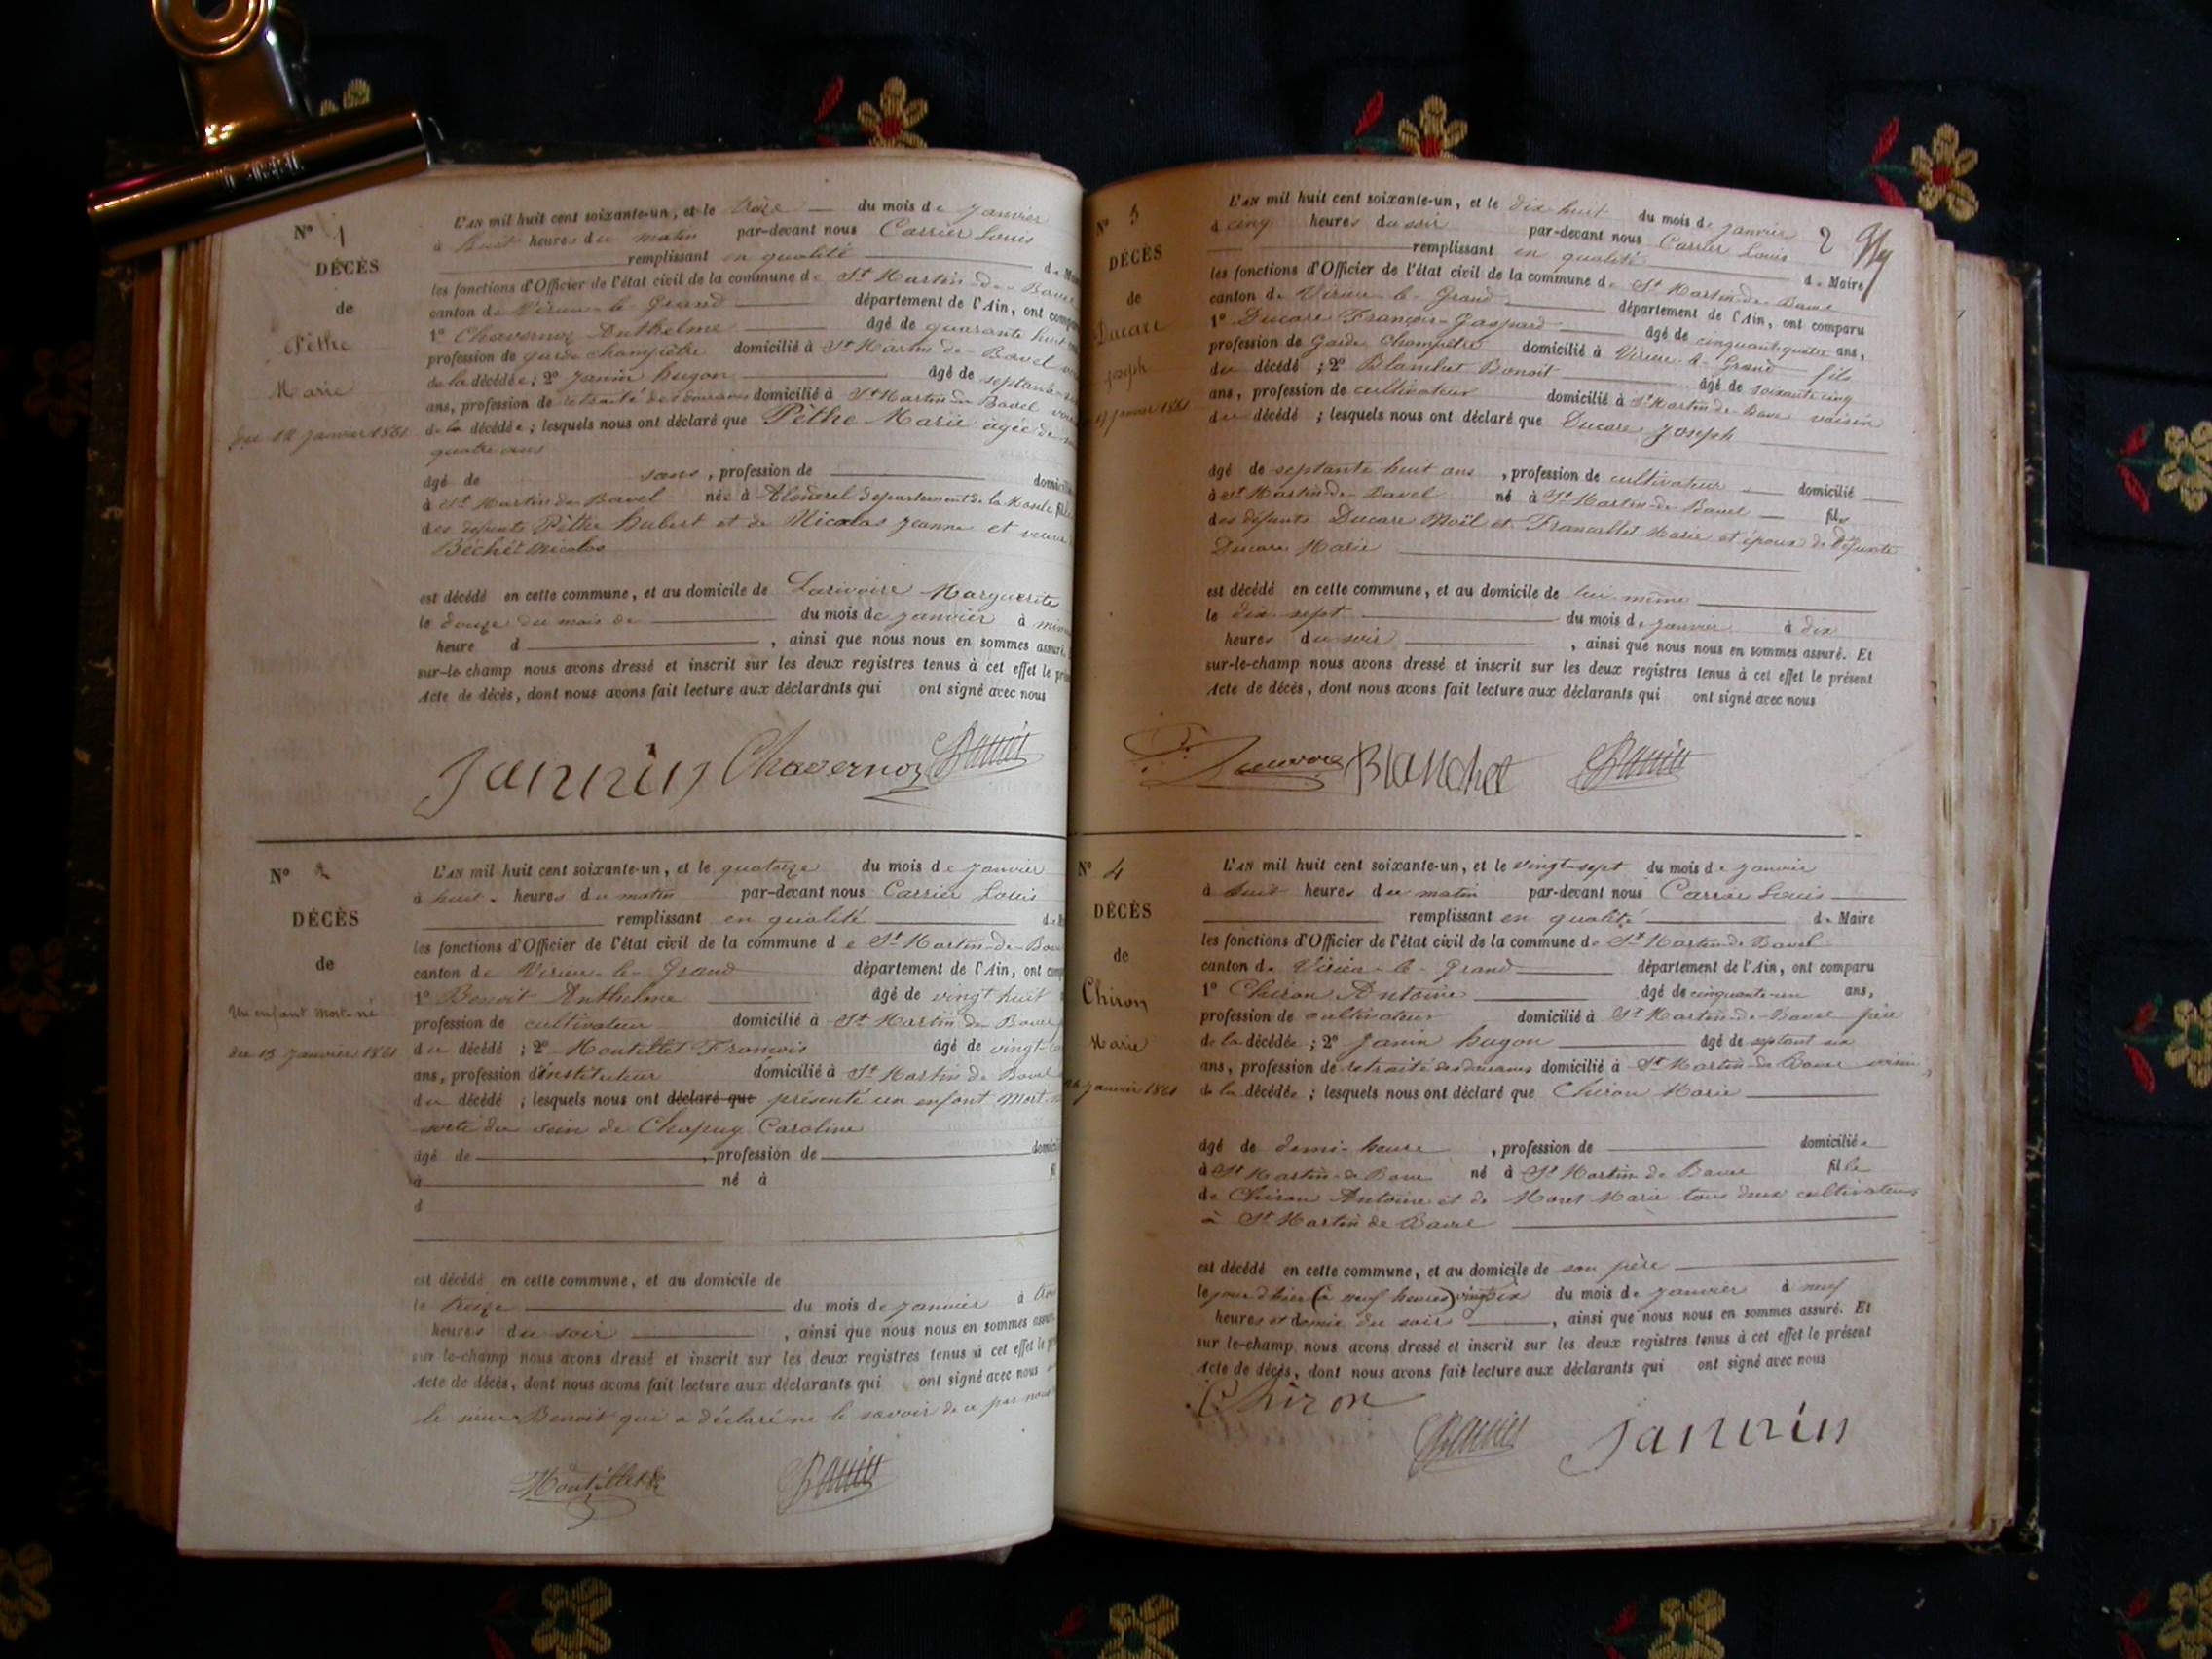 N° 1
DÉCÈS
de
Pèthe
Marie
Du 12 Janvier 1861
L'AN mil huit cent soixante-un, et le treize du mois de Janvier
à huit heures du matin par-devant nous Carrier Louis
remplissant en qualité de Maire
les fonctions d'Officier de l'état civil de la commune de St Martin-de-Bavel
canton de Virieu-le-Grand département de l'Ain, ont
1° Chavernoz Anthelme âgé de quarante huit
profession de garde champêtre domicilié à St Martin-de-Bavel
de la décédée ; 2° Janin hugon âgé de septante
ans, profession de retraité des douanes domicilié à St Martin de Bavel
de la décédée ; lesquels nous ont déclaré que Pèthe Marie agée de
quatre ans
âgé de sans , profession de
à St Martin de Bavel née à département de la
des défunts Pèthe hubert et de Nicolas Jeanne et veuve
Béchet Nicolas
est décédé en cette commune, et au domicile de Larivoire Marguerite
le douze du mois de du mois de janvier à
heure d , ainsi que nous nous en sommes assuré.
sur-le-champ nous avons dressé et inscrit sur les deux registres tenus à cet effet le
Acte de décès, dont nous avons fait lecture aux déclarants qui ont signé avec nous
Jannin Chavernoz
N° 2
DÉCÈS
de
Un enfant mort-né
du 13 Janvier 1861
L'AN mil huit cent soixante-un, et le quatorze du mois de Janvier
à huit heures du matin par-devant nous Carrier Louis
remplissant en qualité
les fonctions d'Officier de l'état civil de la commune de St Martin-de-
canton de Virieu-le-Grand département de l'Ain, ont
1° Benoit Anthelme âgé de vingt huit
profession de cultivateur domicilié à St Martin de Bavel
du décédé ; 2° Montillet François âgé de vingt-
ans, profession d'instituteur domicilié à St Martin de Bavel
du décédé ; lesquels nous ont déclaré que présenté un enfant mort-
sorte du sein de Chapuy Caroline
âgé de , profession de
à né à
d
est décédé en cette commune, et au domicile de
le treize du mois de janvier à
heures du soir , ainsi que nous nous en sommes
sur-le-champ nous avons dressé et inscrit sur les deux registres tenus à cet effet le
Acte de décès, dont nous avons fait lecture aux déclarants qui ont signé avec nous
le sieur Benoit qui a déclaré ne le savoir de ce par nous
Montillet
N° 3
DÉCÈS
de
Ducare
Joseph
17 Janvier 1861
2
L'AN mil huit cent soixante-un, et le dix huit du mois de janvier
à cinq heures du soir par-devant nous Carrier Louis
remplissant en qualité de Maire
les fonctions d'Officier de l'état civil de la commune de St Martin-de-Bavel
canton de Virieu-le-Grand département de l'Ain, ont comparu
1° Ducare François-Gaspard âgé de cinquante quatre ans,
profession de Garde Champêtre domicilié à Virieu-le-Grand fils
du décédé ; 2° Blanchet Benoit âgé de soixante cinq
ans, profession de cultivateur domicilié à St Martin de Bavel voisin
du décédé ; lesquels nous ont déclaré que Ducare Joseph
âgé de septante huit ans , profession de cultivateur domicilié
à St Martin-de-Bavel né à St Martin-de-Bavel fils
des défunts Ducare Noël et Marie et époux de défunte
Ducare Marie
est décédé en cette commune, et au domicile de lui-même
le dix-sept du mois de janvier à dix
heures du soir , ainsi que nous nous en sommes assuré. Et
sur-le-champ nous avons dressé et inscrit sur les deux registres tenus à cet effet le présent
Acte de décès, dont nous avons fait lecture aux déclarants qui ont signé avec nous
Blanchet
N° 4
DÉCÈS
de
Chiron
Marie
26 Janvier 1861
L'AN mil huit cent soixante-un, et le vingt-sept du mois de janvier
à huit heures du matin par-devant nous Carrier Louis
remplissant en qualité de Maire
les fonctions d'Officier de l'état civil de la commune de St Martin-de-Bavel
canton de Virieu-le-Grand département de l'Ain, ont comparu
1° Chiron Antoine âgé de cinquante-un ans,
profession de cultivateur domicilié à St Martin-de-Bavel père
de la décédée ; 2° Janin hugon âgé de septant six
ans, profession de retraité des douanes domicilié à St Martin-de-Bavel voisin
de la décédée ; lesquels nous ont déclaré que Chiron Marie
âgé de demi-heure , profession de domiciliée
à St Martin-de-Bavel né à St Martin de Bavel fille
de Chiron Antoine et de Moret Marie tous deux cultivateurs
à St Martin de Bavel
est décédé en cette commune, et au domicile de son père
le jour d'hier (à neuf heures) vingt six du mois de janvier à neuf
heures et demie du soir , ainsi que nous nous en sommes assuré. Et
sur-le-champ nous avons dressé et inscrit sur les deux registres tenus à cet effet le présent
Acte de décès, dont nous avons fait lecture aux déclarants qui ont signé avec nous
Chiron
Jannin